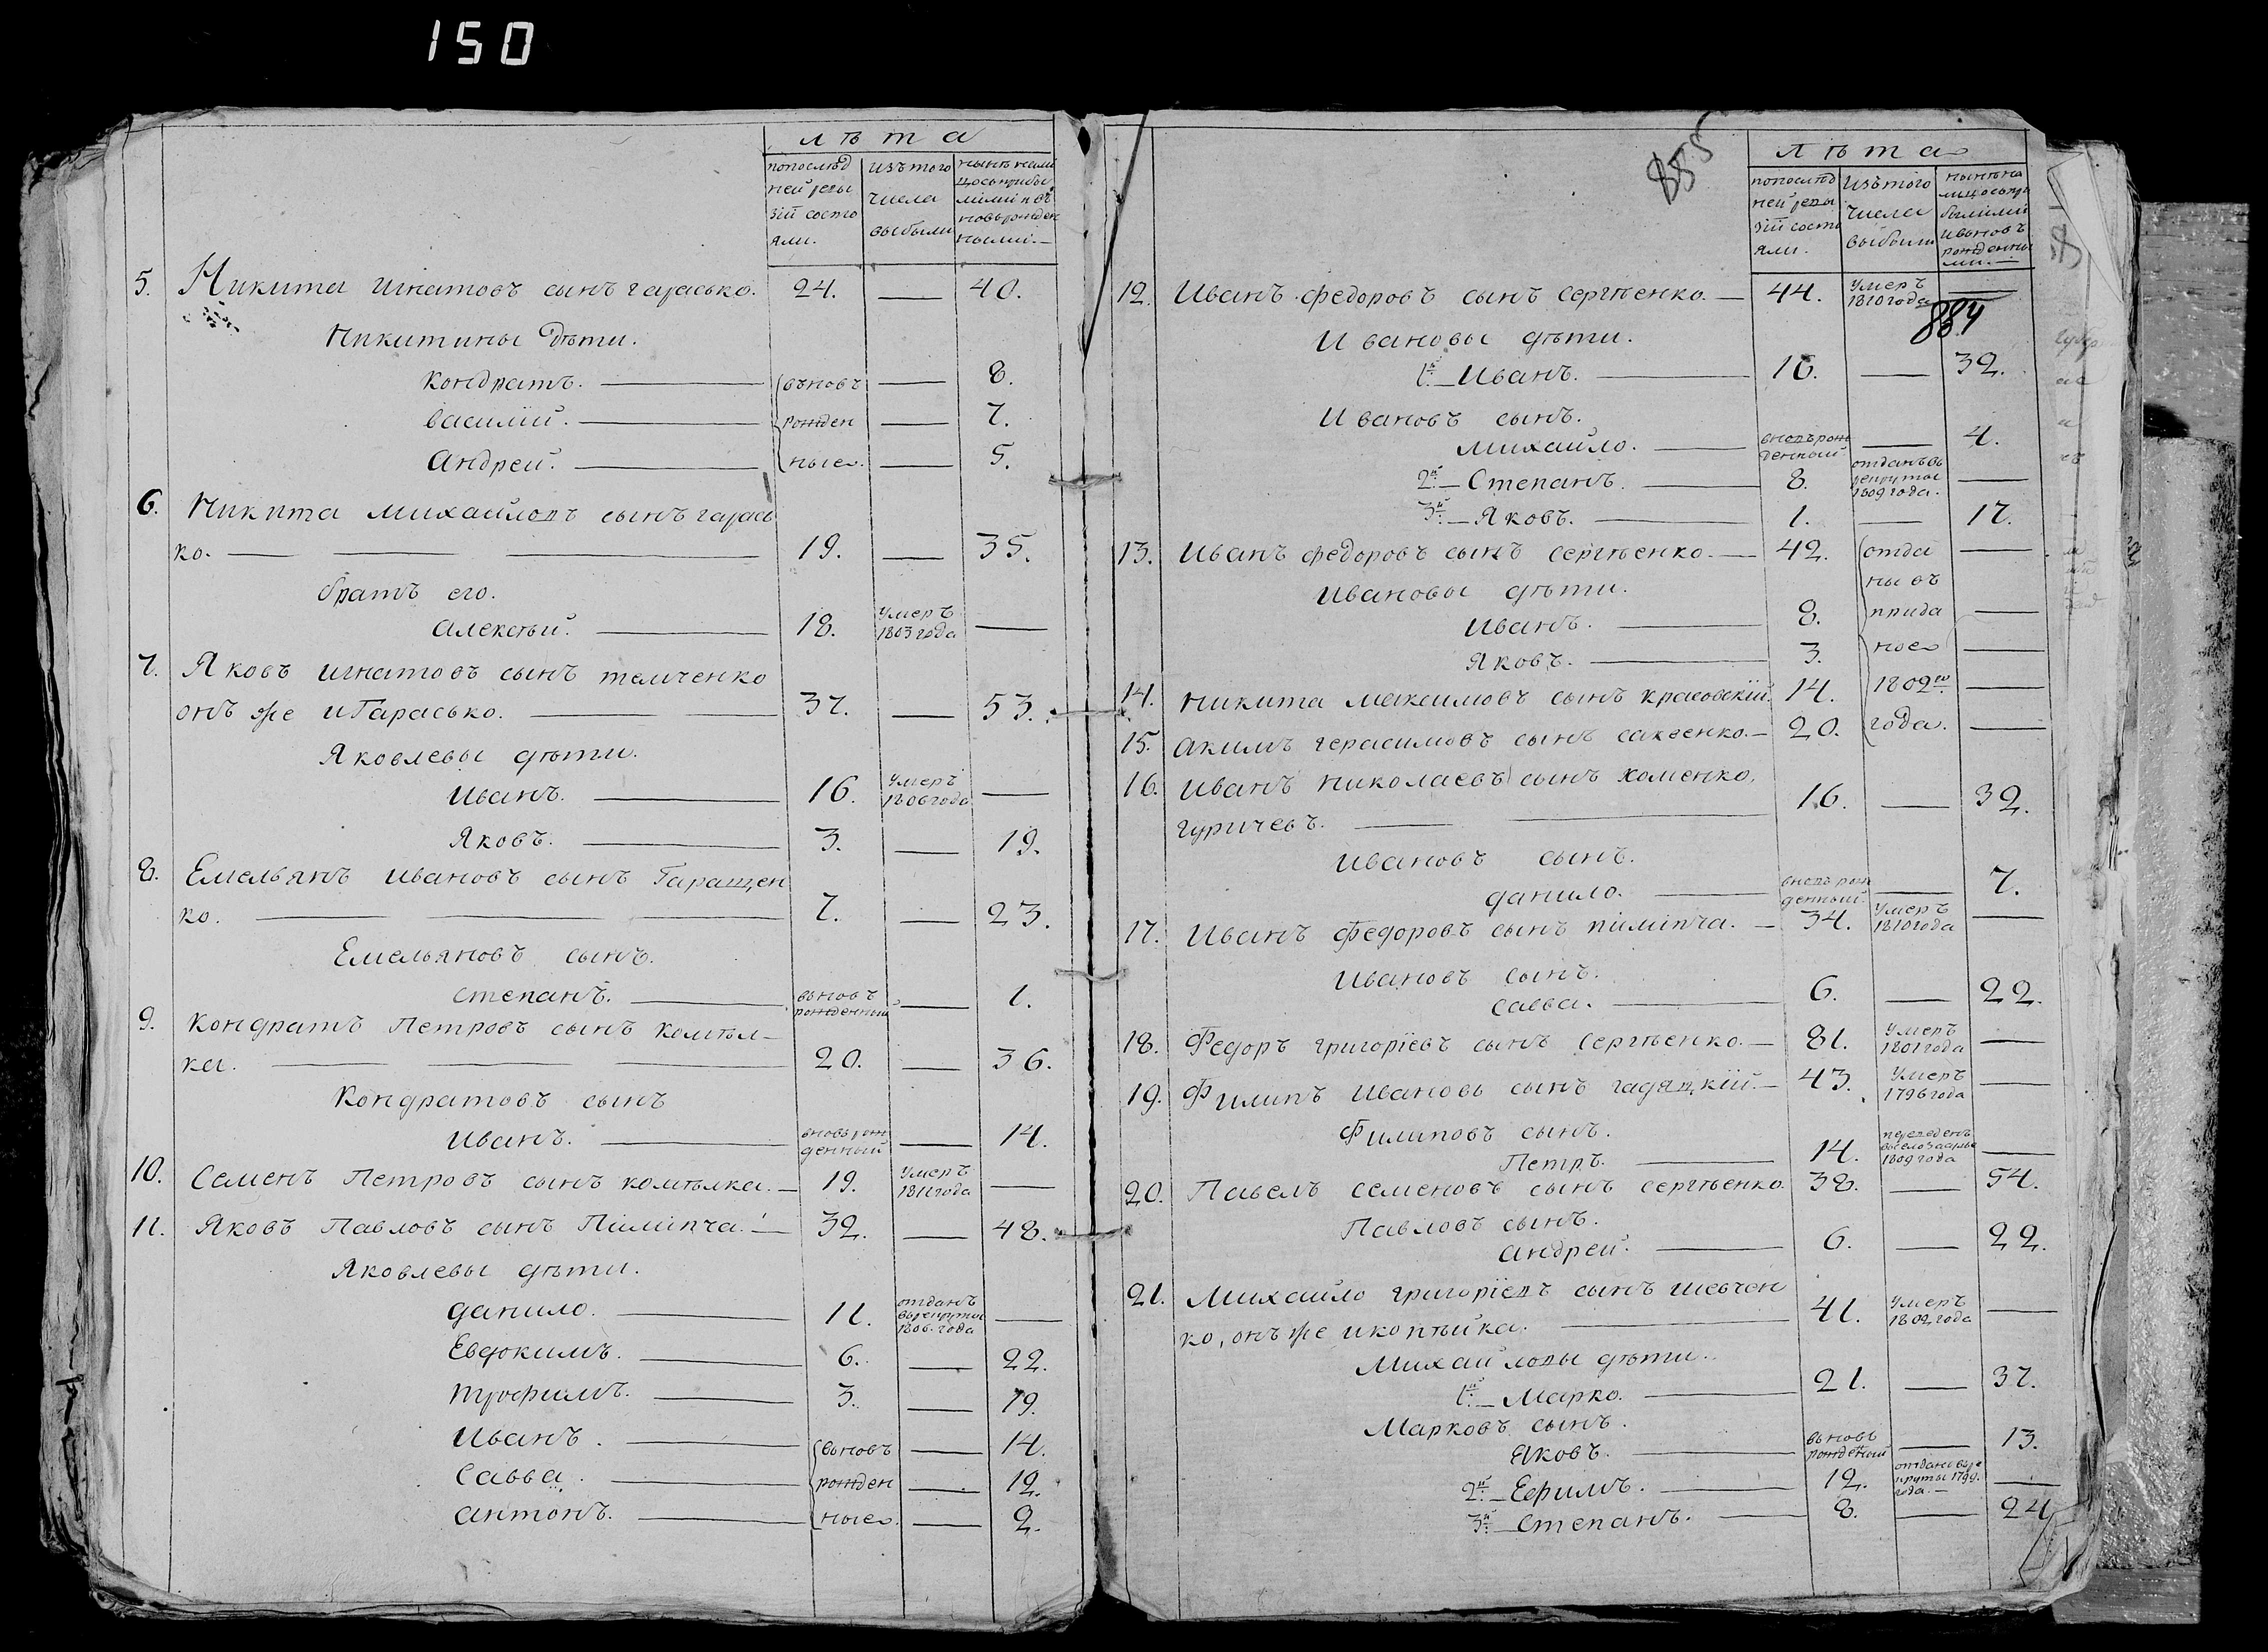 150
лѣта
попослѣд
ней реви
зіи состо
яли.
изътого
числа
выбыли
нынѣ нали
цосприбы
лыми
новърожден
ными.—
5. Никита Игнатовъ сынъ гарасько. 24. — 40.
Никитины дѣти.
Кондратъ. — вновъ — 8.
василій. — рожден — 7.
Андрей. — ные. — 5.
6. Никита михайловъ сынъ гарась
ко. — 19. — 35.
братъ его.
Алексѣй. — 18. умеръ 1803 года —
7. Яковъ игнатовъ сынъ темченко
онъ же и Гарасько. — 37. — 53.
Яковлевы дѣти.
Иванъ. — 16. умеръ 1806 года —
Яковъ. — 3. — 19.
8. Емельянъ ивановъ сынъ Гаращен
ко. — 7. — 23.
Емельяновъ сынъ.
степанъ. — вновъ рожденный — 1.
9. Кондратъ Петровъ сынъ комѣл-
ка. — 20. — 36.
Кондратовъ сынъ
Иванъ. — вновърожденный — 14.
10. Семенъ Петровъ сынъ комѣлка. — 19. умеръ 1811 года —
11. Яковъ Павловъ сынъ Пилипча. — 32. — 48.
Яковлевы дѣти.
данило. — 11. отданъ врекруты 1806. года —
Евдокимъ. — 6. — 22.
трофимъ. — 3. — 19.
Иванъ. — вновъ — 14.
Савва. — рожден — 12.
антонъ. — ные. — 2.
885
лѣта
попослѣд
ней реви
зіи состо
яли.
Изътого
числа
выбыли
нынѣна
лицоспри
былыми
ивновъ
рожденны
ми.—
12. Иванъ федоровъ сынъ сергѣенко. — 44. умеръ 1810 года —
884
Ивановы дѣти.
1й — Иванъ. — 16. — 32.
Ивановъ сынъ.
михайло. — вновърожденный — 4.
2й — Степанъ. — 8. отданъвъ рекруты 1809 года. —
3й — Яковъ. — 1. — 17.
13. Иванъ федоровъ сынъ сергѣенко. — 42. отда —
Ивановы дѣти. ны въ
Иванъ. — 8. прида —
Яковъ. — 3. ное —
14. никита максимовъ сынъ красовскій. 14. 1802го —
15. Акимъ герасимовъ сынъ саквенко. — 20. года. —
16. Иванъ николаевъ сынъ хоменко,
гуричевъ. — 16. — 32.
Ивановъ сынъ.
данило. — вновърожденный. — 7.
17. Иванъ федоровъ сынъ пилипча. — 34. умеръ 1810 года —
Ивановъ сынъ.
савва. — 6. — 22.
18. Федоръ григоріевъ сынъ Сергѣенко. — 81. умеръ 1801 года —
19. Филипъ Ивановъ сынъ гадяцкій. — 43. умеръ 1796 года —
Филиповъ сынъ.
Петръ. — 14. переведенъ 1809 года —
20. Павелъ семеновъ сынъ сергѣенко. 38. — 54.
Павловъ сынъ.
андрей. — 6. — 22.
21. Михайло григоріевъ сынъ шевчен
ко, онъ же и копѣйка. — 41. умеръ 1802 года —
Михайловы дѣти.
1й — Марко. — 21. — 37.
Марковъ сынъ.
Яковъ. — вновъ рожденный — 13.
2й — Ефимъ. — 12. отданъ врекруты 1799. года. —
3й — Степанъ. — 8. — 24